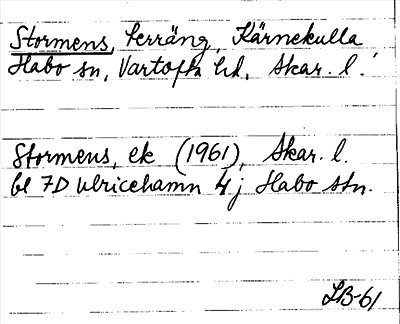 Stormens, terräng, Kärnekulla
Habo sn, Vartofta hd, Skar. l.
Stormens, ek (1961), Skar. l.
bl 7D Ulricehamn 4j Habo stn.
LB-61